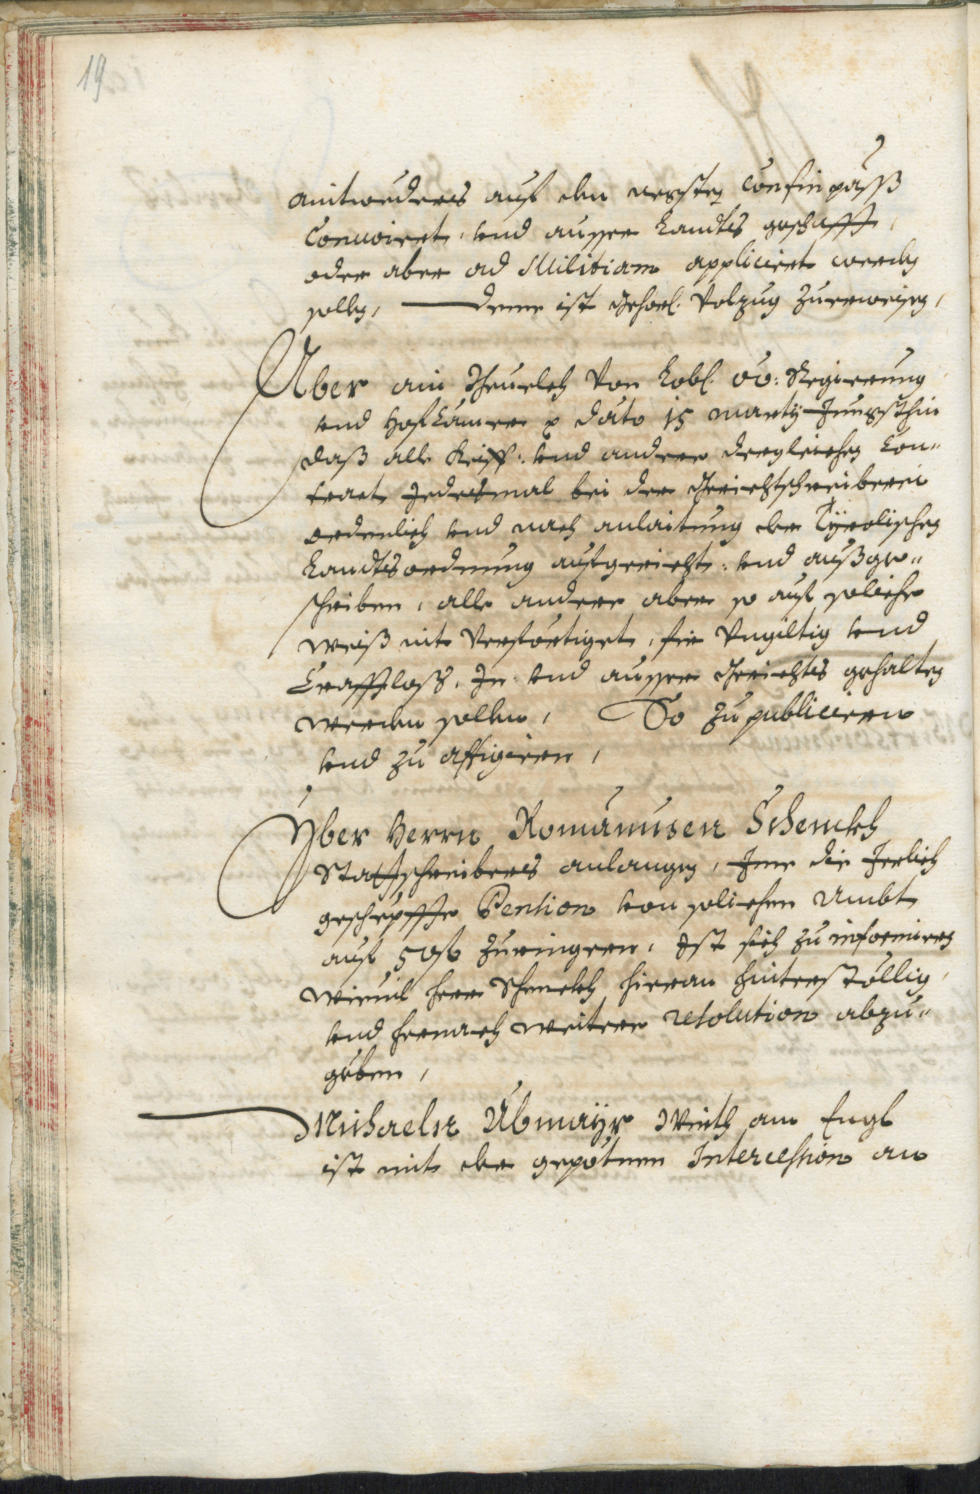 19
aintweders auf den negsten Confinpäss
Conuoiert, vnd ausser Landts geschafft,
oder aber ad Militiam appliciert werden
sollen, Deme ist gehorl. Volzug zuerweisen,
Über ain Schreiben von Lobl. OÖ: Regierung
vnd Hof Camer dato 15 marty Jüngsthin
daß alle Keiff: vnd andere dergleichen Con„
tract Jedesmal bei der Gerichtschreiberei
ordenlich vnd nach anlaitung der Tÿrolischen
Landtsordnung aufgericht: vnd außge„
schriben, alle andere aber so auf soliche
weiß nit verförtiget, für Vngiltig vnd
Crafftloß, In vnd ausser Gerichts gehalten
werden sollen, So zu publicieren
vnd zu affigiren,
Yber Herrn Romanusen Schenckh
Stattschreibers anlangen, Ime die Jerlich
geschepffte Pention von solichen Ambt
auf 50 zuringern, Ist sich zu informiren
wieuil herr Schenckh hieran hinterstöllig,
vnd hernach weitere resolution abzu„
geben,
Michaeln Übmayr Wirth am Engl
ist mit der gepötnen Intercession an